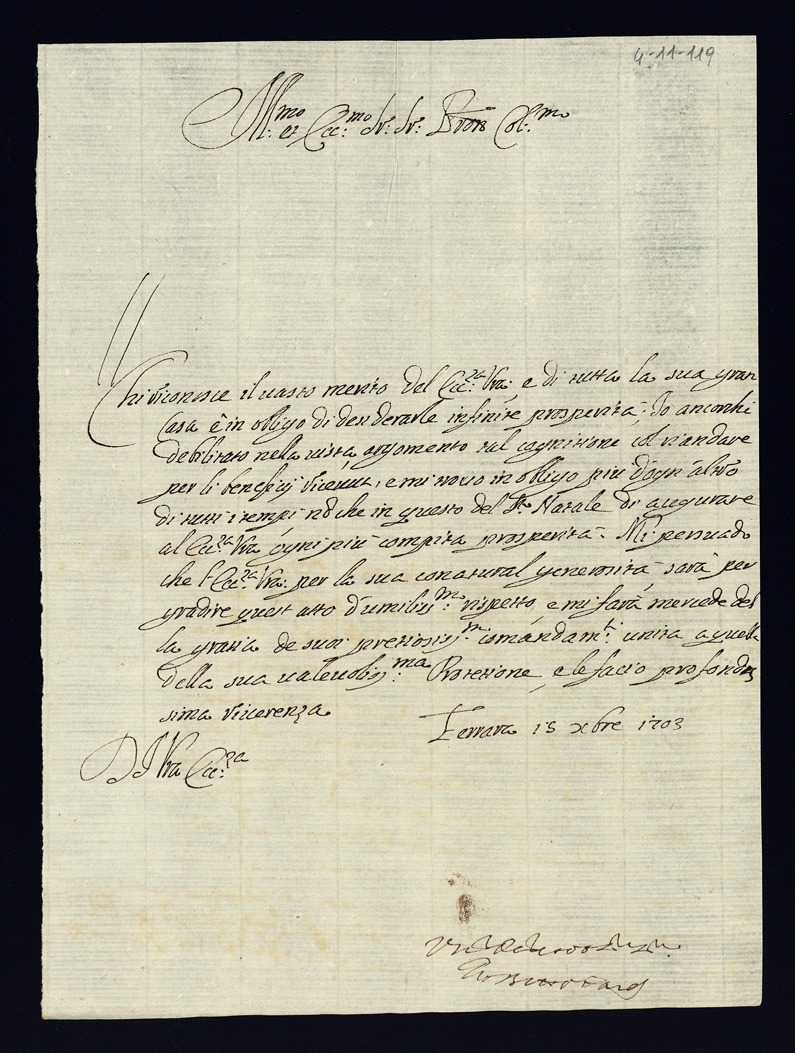 4-11-119
Ill:mo et Ecc:mo Sr: Sr: Pron Col:mo
Chi riconosce il uasto merito del Ecc:za Vra: e di tutta la sua gran
Casa è in obligo di desiderarle infinite prosperità: Io ancorchi
debilitato nella uista argomento tal cognitione col riandare
per li beneficij riceuuti, e mi trouo in obligo più d'ogn'altro
di tutti i tempi nō che in questo del Sto Natale di augurare
al Ecc:za Vra ogni più compita prosperità. Mi persuado
che l'Ecc:za Vra: per la sua conatural generosità, sarà per
gradire quest'atto d'umilissi:mo rispetto, e mi farà mercede del
la gratia de suoi pretiosissi:mi comandam:ti unita a quella
della sua ualeuoliss:ma Protetione, e le facio profondis
sima riuerenza
Ferrara 15 xbre 1703
Di Vra Ecc:za